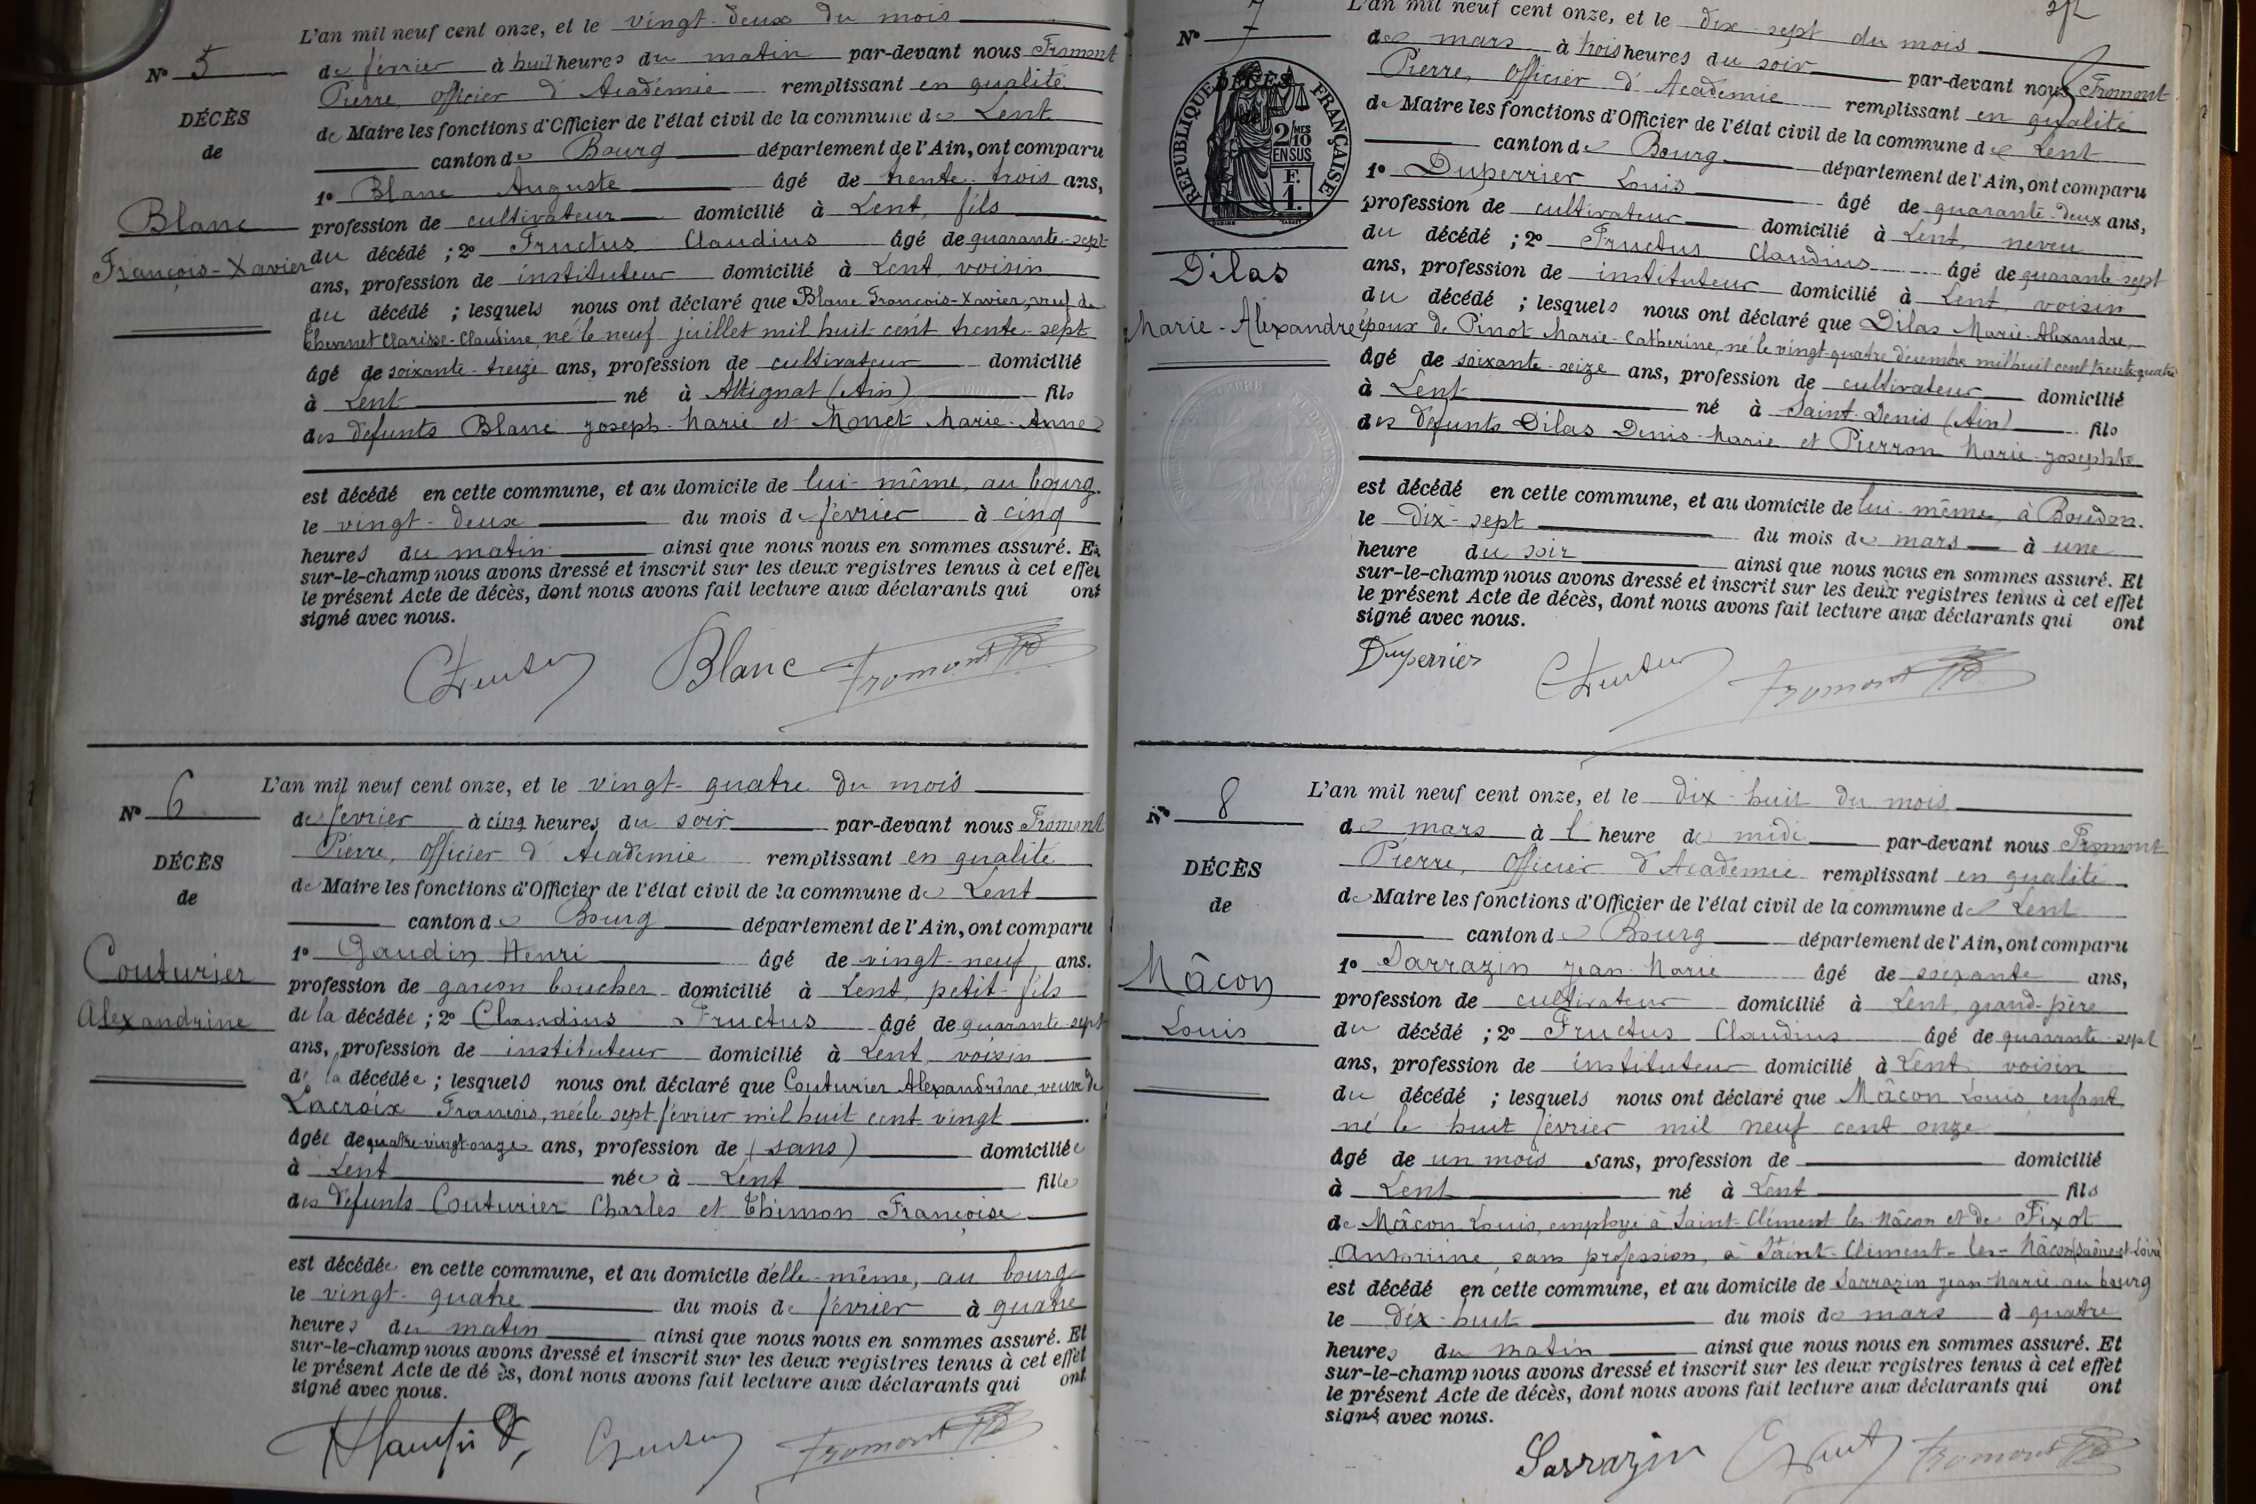 L'an mil neuf cent onze, et le vingt-deux du mois
N° 5
de février à huit heures du matin par-devant nous Fromont
Pierre, Officier d'Académie remplissant en qualité
DÉCÈS
de Maire les fonctions d'Officier de l'état civil de la commune de Lent
de
canton de Bourg département de l'Ain, ont comparu
1° Blanc Auguste âgé de trente-trois ans,
Blanc
profession de cultivateur domicilié à Lent, fils
François-Xavier
du décédé ; 2° Fructus Claudius âgé de quarante-sept
ans, profession de instituteur domicilié à Lent, voisin
du décédé ; lesquels nous ont déclaré que Blanc François-Xavier, veuf de
Chevanet Clarisse-Claudine, né le neuf juillet mil huit cent trente-sept
âgé de soixante-treize ans, profession de cultivateur domicilié
à Lent né à Attignat (Ain) fils
des défunts Blanc Joseph-Marie et Monet Marie-Anne
est décédé en cette commune, et au domicile de lui-même, au bourg.
le vingt-deux du mois de février à cinq
heures du matin ainsi que nous nous en sommes assuré. Et
sur-le-champ nous avons dressé et inscrit sur les deux registres tenus à cet effet
le présent Acte de décès, dont nous avons fait lecture aux déclarants qui ont
signé avec nous.
Blanc Fromont
L'an mil neuf cent onze, et le vingt-quatre du mois
N° 6
de février à cinq heures du soir par-devant nous Fromont
Pierre, Officier d'Académie remplissant en qualité
DÉCÈS
de Maire les fonctions d'Officier de l'état civil de la commune de Lent
de
canton de Bourg département de l'Ain, ont comparu
1° Gaudin Henri âgé de vingt-neuf ans.
Couturier
profession de garçon boucher domicilié à Lent, petit-fils
Alexandrine
de la décédée ; 2° Claudius Fructus âgé de quarante-sept
ans, profession de instituteur domicilié à Lent, voisin
de la décédée ; lesquels nous ont déclaré que Couturier Alexandrine, veuve de
Lacroix François, née le sept février mil huit cent vingt
âgée de quatre-vingt-onze ans, profession de (sans) domiciliée
à Lent née à Lent fille
des défunts Couturier Charles et Thimon Françoise
est décédée en cette commune, et au domicile d'elle-même, au bourg
le vingt-quatre du mois de février à quatre
heures du matin ainsi que nous nous en sommes assuré. Et
sur-le-champ nous avons dressé et inscrit sur les deux registres tenus à cet effet
le présent Acte de dé ès, dont nous avons fait lecture aux déclarants qui ont
signé avec nous.
Fromont
L'an mil neuf cent onze, et le dix-sept du mois
N° 7
de mars à trois heures du soir par-devant nous Fromont
Pierre, Officier d'Académie remplissant en qualité
DÉCÈS
de
RÉPUBLIQUE FRANÇAISE
2/10 MES EN SUS
F. 1.
de Maire les fonctions d'Officier de l'état civil de la commune de Lent
canton de Bourg département de l'Ain, ont comparu
1° Duperrier Louis âgé de quarante-deux ans,
profession de cultivateur domicilié à Lent, neveu
du décédé ; 2° Fructus Claudius âgé de quarante-sept
Dilas
ans, profession de instituteur domicilié à Lent, voisin
du décédé ; lesquels nous ont déclaré que Dilas Marie-Alexandre,
Marie-Alexandre
époux de Pinot Marie-Catherine, né le vingt-quatre décembre mil huit cent trente-quatre
âgé de soixante-seize ans, profession de cultivateur domicilié
à Lent né à Saint-Denis (Ain) fils
des défunts Dilas Denis-Marie et Pierron Marie-Josephte
est décédé en cette commune, et au domicile de lui-même, à Boudon.
le dix-sept du mois de mars à une
heure du soir ainsi que nous nous en sommes assuré. Et
sur-le-champ nous avons dressé et inscrit sur les deux registres tenus à cet effet
le présent Acte de décès, dont nous avons fait lecture aux déclarants qui ont
signé avec nous.
Duperrier Fromont
L'an mil neuf cent onze, et le dix-huit du mois
N° 8
de mars à l'heure de midi par-devant nous Fromont
Pierre, Officier d'Académie remplissant en qualité
DÉCÈS
de Maire les fonctions d'Officier de l'état civil de la commune de Lent
de
canton de Bourg département de l'Ain, ont comparu
1° Sarrazin Jean-Marie âgé de soixante ans,
Mâcon
profession de cultivateur domicilié à Lent, grand-père
Louis
du décédé ; 2° Fructus Claudius âgé de quarante-sept
ans, profession de instituteur domicilié à Lent voisin
du décédé ; lesquels nous ont déclaré que Mâcon Louis, enfant
né le huit février mil neuf cent onze
âgé de un mois sans, profession de domicilié
à Lent né à Lent fils
de Mâcon Louis, employé à Saint-Clément-les-Mâcon et de Fixot
Antonine, sans profession, à Saint-Clément-les-Mâcon (Saône-et-Loire)
est décédé en cette commune, et au domicile de Sarrazin Jean-Marie au bourg
le dix-huit du mois de mars à quatre
heures du matin ainsi que nous nous en sommes assuré. Et
sur-le-champ nous avons dressé et inscrit sur les deux registres tenus à cet effet
le présent Acte de décès, dont nous avons fait lecture aux déclarants qui ont
signé avec nous.
Sarrazin Fromont